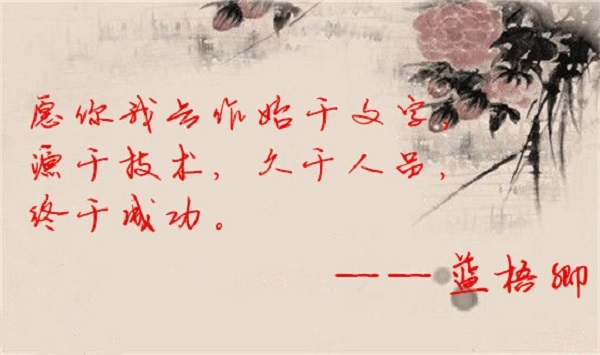 愿你我合作始于文字，
源于技术，久于人品，
终于成功。
——蓝梧卿